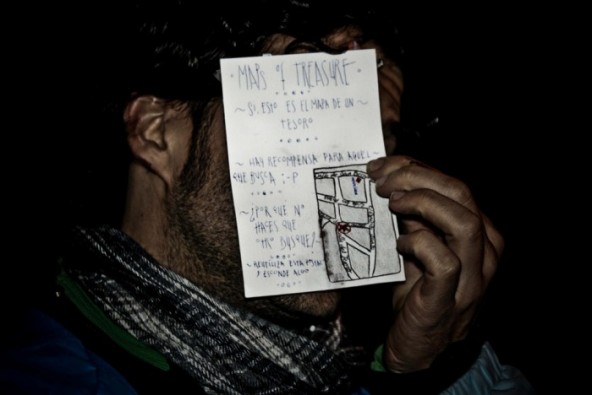 · MAPS of TREASURE ·
~ SI, ESTO ES EL MAPA DE UN ~
TESORO
~ HAY RECOMPENSA PARA AQUEL
QUE BUSCA ;-P
~ ¿POR QUÉ NO
HACES QUE
OTRO BUSQUE? ~
~ REUTILIZA ESTA
Y ESCONDE ALGO